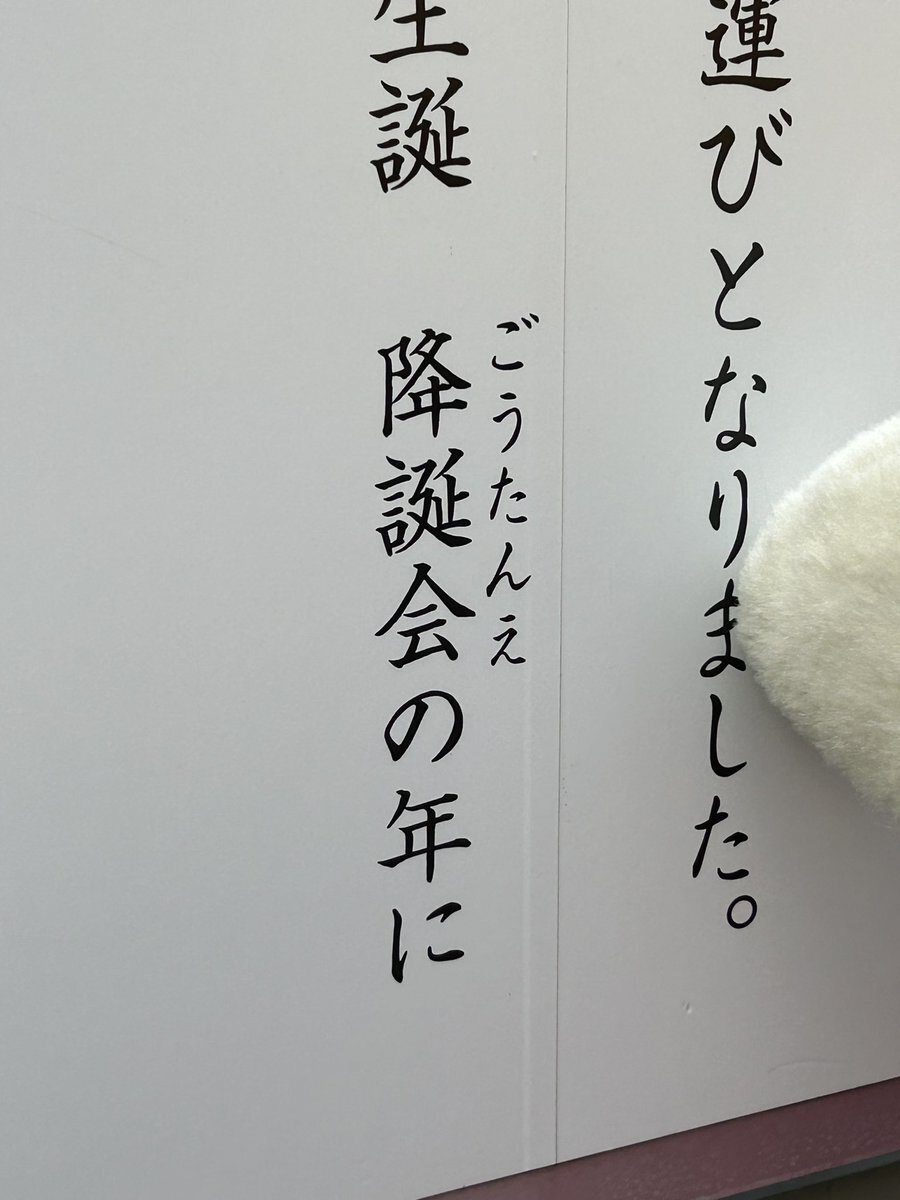 運びとなりました。
生誕　降誕会の年に
ごうたんえ